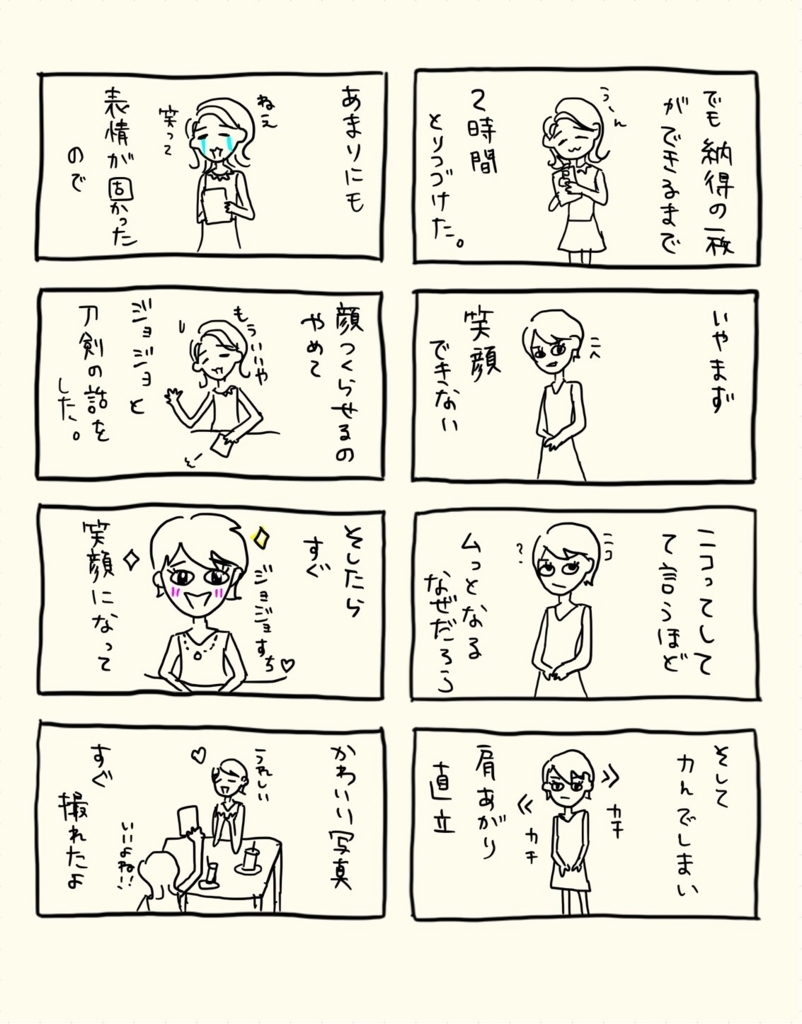 でも納得の一枚
ができるまで
う〜ん
2時間
とりつづけた。
いやまず
笑顔
できない
ニコってして
て言うほど
ニコ
?
ムっとなる
なぜだろう
そして
力んでしまい
カチ
肩あがり
直立
カチ
あまりにも
ねえ
笑って
表情が固かった
ので
顔つくらせるの
やめて
もういいや
ジョジョと
刀剣の話を
した。
そしたら
すぐ
ジョジョすち♡
笑顔になって
かわいい写真
うれしい
♡
すぐ
撮れたよ
いいよね!!